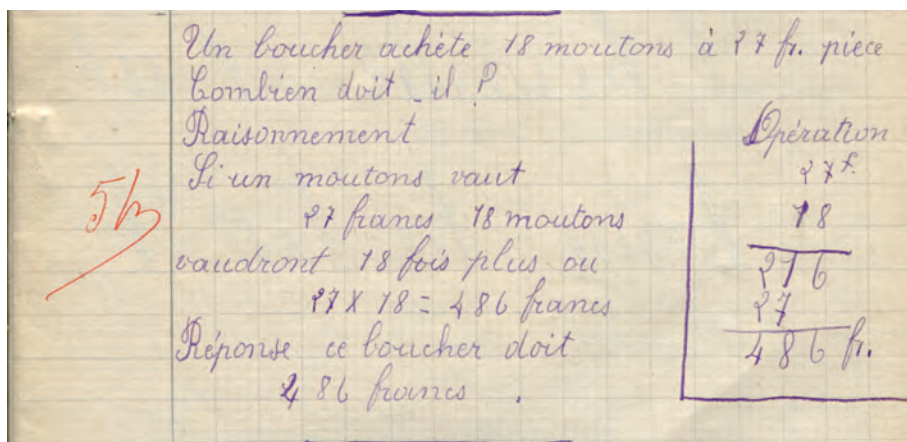 Un boucher achète 18 moutons à 27 fr. pièce
Combien doit-il ?
Raisonnement
Si un moutons vaut
27 francs 18 moutons
vaudront 18 fois plus ou
27 x 18 = 486 francs
Réponse ce boucher doit
486 francs.
Opération
27 f.
18
216
27
486 fr.